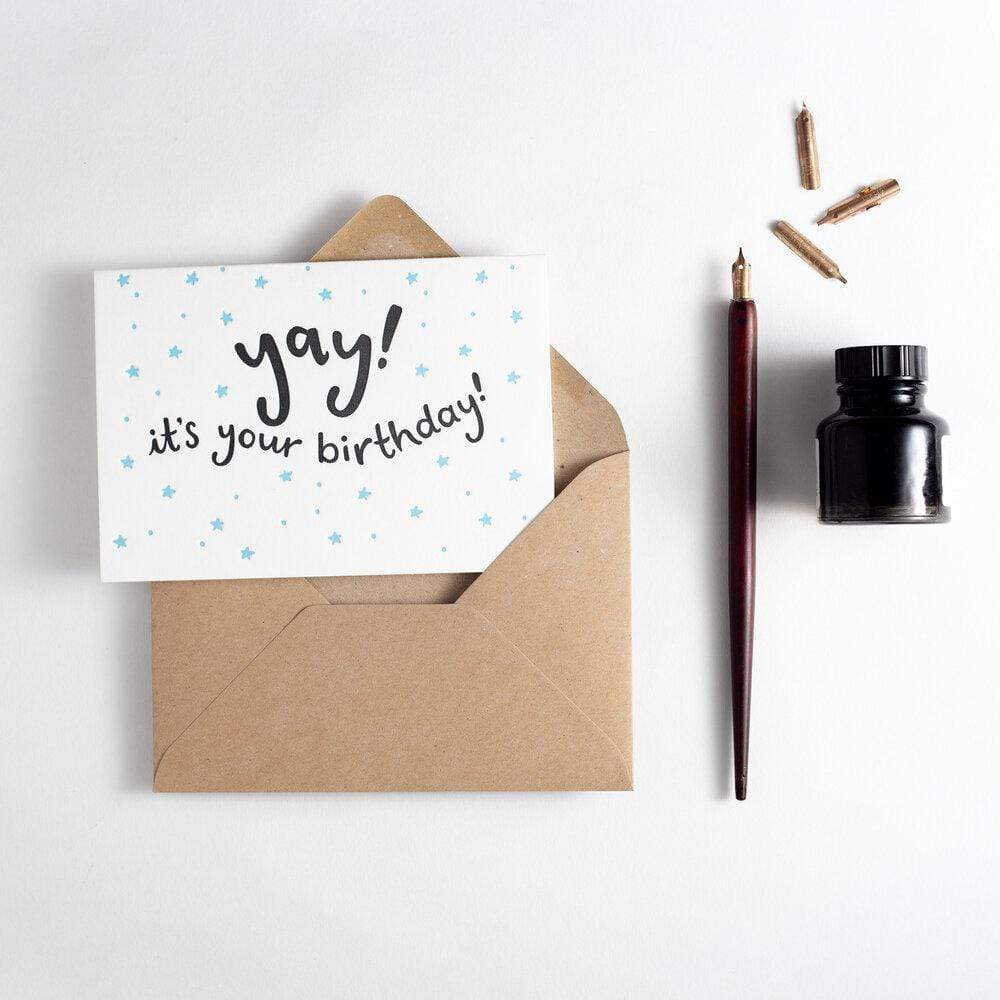 yay!
it's your birthday!